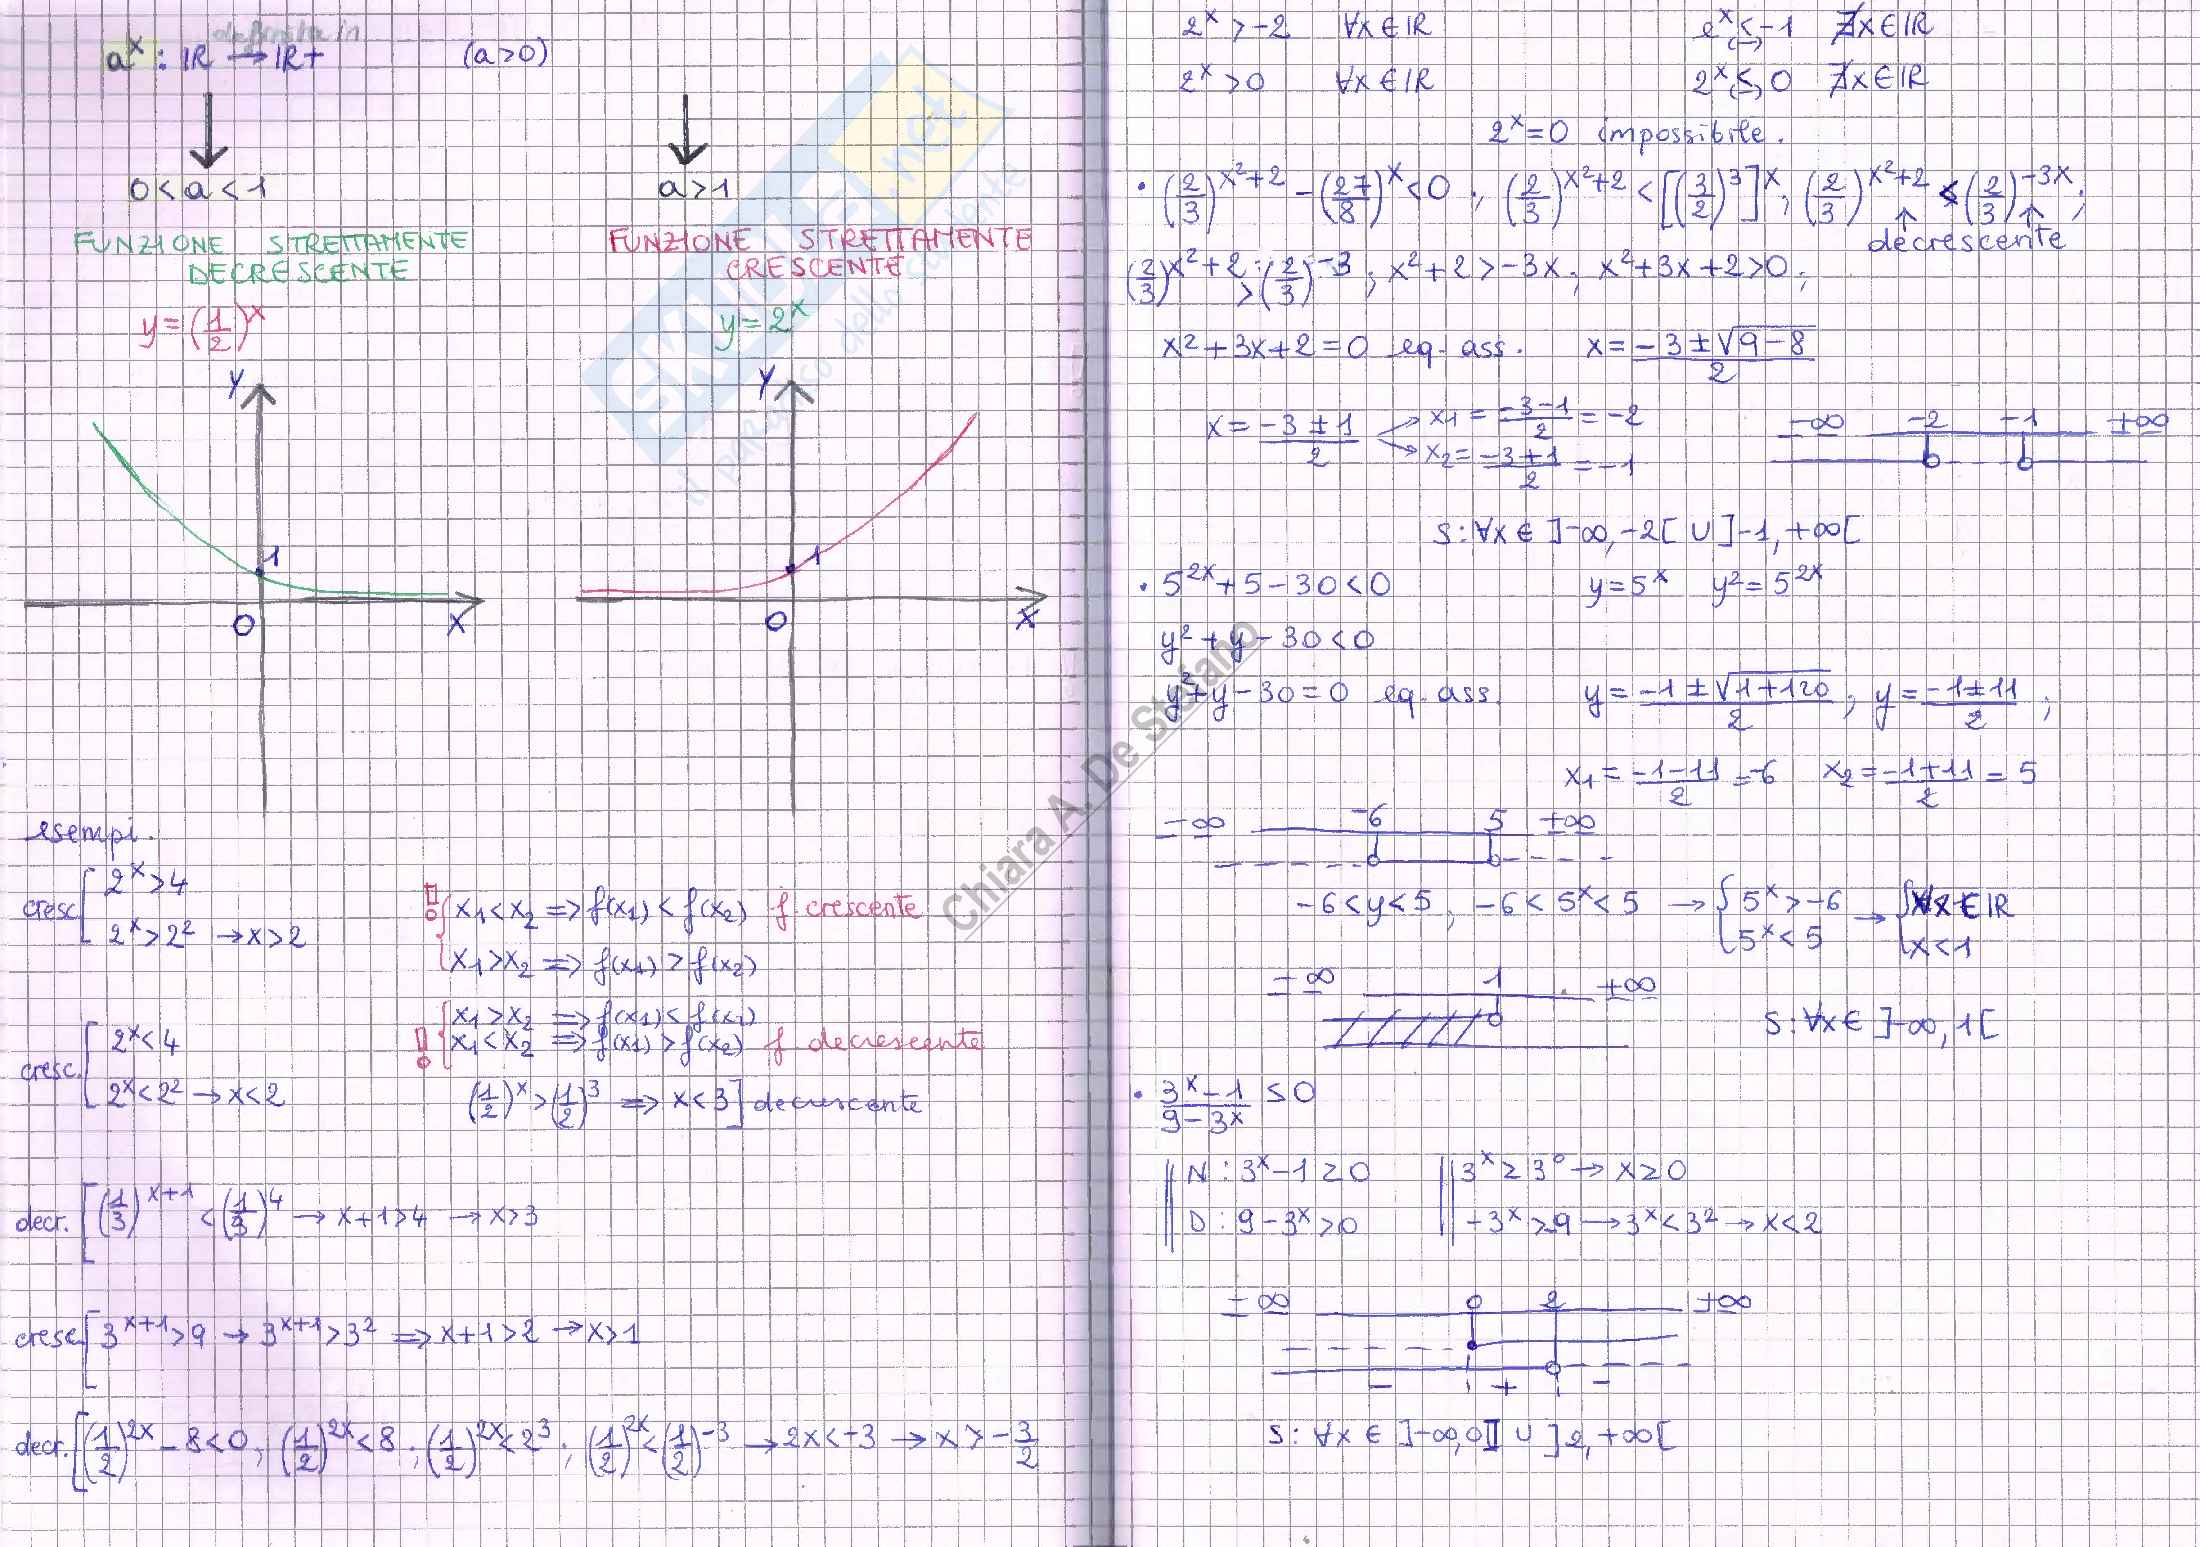 definita in
aˣ : ℝ → ℝ+ (a>0)
0<a<1 a>1
FUNZIONE STRETTAMENTE
DECRESCENTE
FUNZIONE STRETTAMENTE
CRESCENTE
y=(1/2)ˣ y=2ˣ
y
1
0
x
y
1
0
x
esempi.
cresc. [ 2ˣ>4
2ˣ>2² → x>2
x₁<x₂ => f(x₁)<f(x₂) f. crescente
x₁>x₂ => f(x₁)>f(x₂)
x₁>x₂ => f(x₁)<f(x₂)
x₁<x₂ => f(x₁)>f(x₂) f decrescente
cresc. [ 2ˣ<4
2ˣ<2² → x<2
(1/2)ˣ>(1/2)³ => x<3] decrescente
decr. [ (1/3)^(x+1) < (1/3)⁴ → x+1>4 → x>3
cresc. [ 3^(x+1)>9 → 3^(x+1)>3² => x+1>2 → x>1
decr. [ (1/2)^(2x) - 8<0; (1/2)^(2x)<8; (1/2)^(2x)<2³; (1/2)^(2x)<(1/2)^(-3) → 2x<-3 → x>-3/2
2ˣ>-2 ∀x∈ℝ eˣ(≤)-1 ∄x∈ℝ
2ˣ>0 ∀x∈ℝ 2ˣ(≤)0 ∄x∈ℝ
2ˣ=0 impossibile.
• (2/3)^(x²+2) - (27/8)ˣ<0; (2/3)^(x²+2) < [(3/2)³]ˣ; (2/3)^(x²+2) < (2/3)^(-3x);
decrescente
(2/3)^(x²+2) > (2/3)^(-3); x²+2>-3x; x²+3x+2>0;
x²+3x+2=0 eq. ass. x=(-3±√(9-8))/2
x=(-3±1)/2 x₁=(-3-1)/2=-2
x₂=(-3+1)/2=-1
-∞ -2 -1 +∞
S: ∀x∈ ]-∞,-2[ ∪ ]-1,+∞[
• 5^(2x)+5-30<0 y=5ˣ y²=5^(2x)
y²+y-30<0
y²+y-30=0 eq. ass. y=(-1±√(1+120))/2; y=(-1±11)/2;
x₁=(-1-11)/2=-6 x₂=(-1+11)/2=5
-∞ -6 5 +∞
-6<y<5, -6<5ˣ<5 → { 5ˣ>-6 → { ∀x∈ℝ
5ˣ<5 x<1
-∞ 1 +∞
S: ∀x∈ ]-∞,1[
• (3ˣ-1)/(9-3ˣ) ≤0
N: 3ˣ-1≥0 3ˣ≥3⁰ → x≥0
D: 9-3ˣ>0 -3ˣ>-9 → 3ˣ<3² → x<2
-∞ 0 2 +∞
- + -
S: ∀x∈ ]-∞,0] ∪ ]2,+∞[
Chiara A. De Stefano
SKUOLA.net
il paradiso dello studente